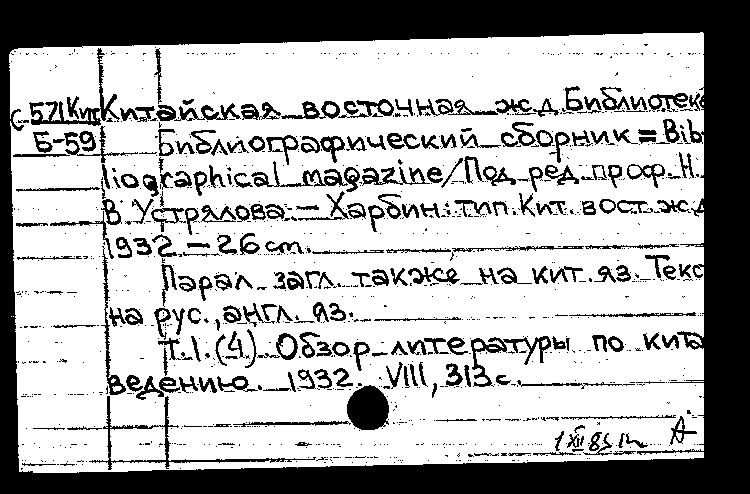 С 571Кит Китайская восточная ж.д. Библиотека
Б-59 Библиографический сборник = Bib-
liographical magazine/Под ред. проф. Н.
В. Устрялова. — Харбин: тип. Кит. вост. ж.д.
1932 — 26 cm.
Парал. загл. также на кит. яз. Текс
на рус., англ. яз.
Т.1.(4) Обзор литературы по кита
ведению. 1932. VIII, 313 с.